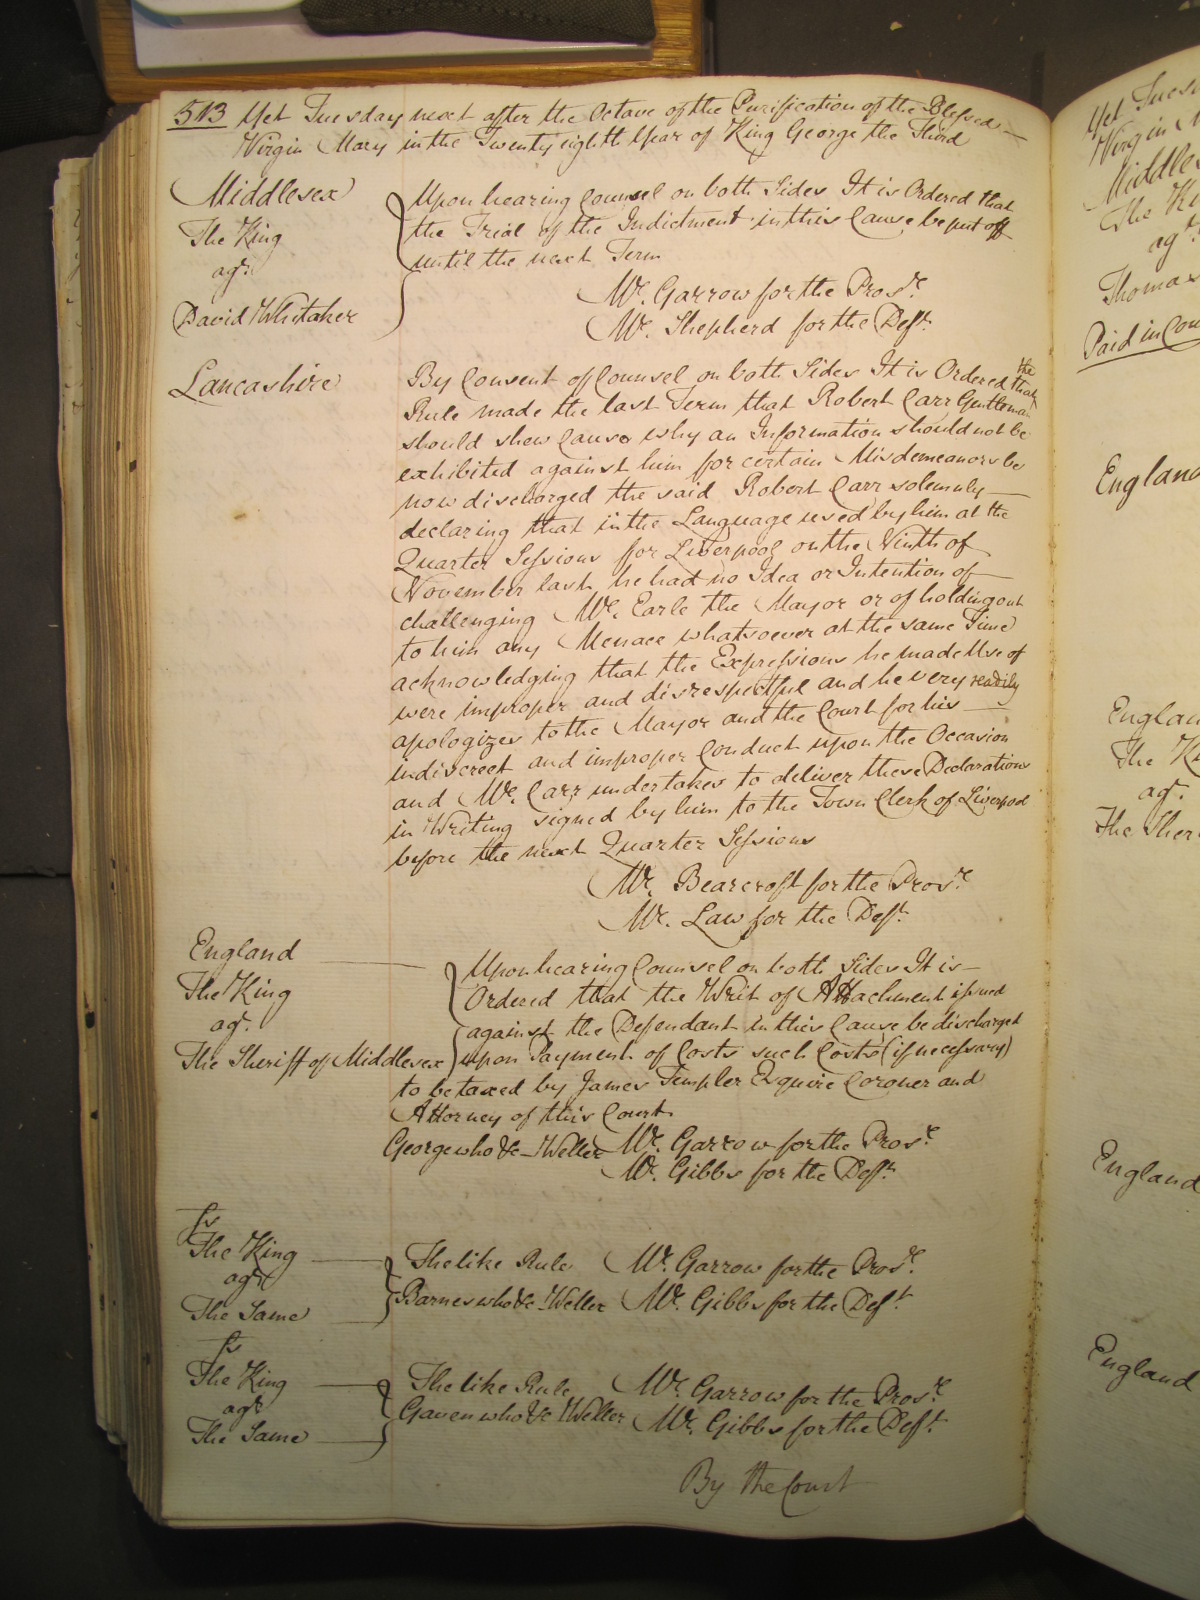 513 Yet Tuesday next after the Octave of the Purification of the Blessed
Virgin Mary in the Twenty eighth Year of King George the Third
Middlesex
The King
agt.
David Whitaker
Upon hearing Counsel on both Sides It is Ordered that
the Trial of the Indictment in this Cause be put off
until the next Term
Mr. Garrow for the Prosr.
Mr. Shepherd for the Deft.
Lancashire
By Consent of Counsel on both Sides It is Ordered that the
Rule made the last Term that Robert Carr Gentleman
should shew Cause why an Information should not be
exhibited against him for certain Misdemeanors be
now discharged the said Robert Carr solemnly
declaring that in the Language used by him at the
Quarter Sessions for Liverpool on the Ninth of
November last he had no Idea or Intention of
challenging Mr. Earle the Mayor or of holding out
to him any Menace whatsoever at the same Time
acknowledging that the Expressions he made Use of
were improper and disrespectful and he very readily
apologizes to the Mayor and the Court for his
indiscreet and improper Conduct upon the Occasion
and Mr. Carr undertakes to deliver these Declarations
in Writing signed by him to the Town Clerk of Liverpool
before the next Quarter Sessions
Mr. Bearcroft for the Prosr.
Mr. Law for the Deft.
England
The King
agt.
The Sheriff of Middlesex
Upon hearing Counsel on both Sides It is
Ordered that the Writ of Attachment issued
against the Defendant in this Cause be discharged
upon Payment of Costs such Costs (if necessary)
to be taxed by James Templer Esquire Coroner and
Attorney of this Court
George who &c Weller Mr. Garrow for the Prosr.
Mr. Gibbs for the Deft.
Ss
The King
agt
The Same
The like Rule Mr. Garrow for the Prosr.
Barnes who &c Weller Mr. Gibbs for the Deft.
Ss
The King
agt
The Same
The like Rule Mr. Garrow for the Prosr.
Gaven who &c Weller Mr. Gibbs for the Deft.
By the Court
Yet Tues
Virgin M
Middles
The Ki
agt.
Thomas
Paid in Cou
England
Englan
The K
agt.
The Sher
England
England